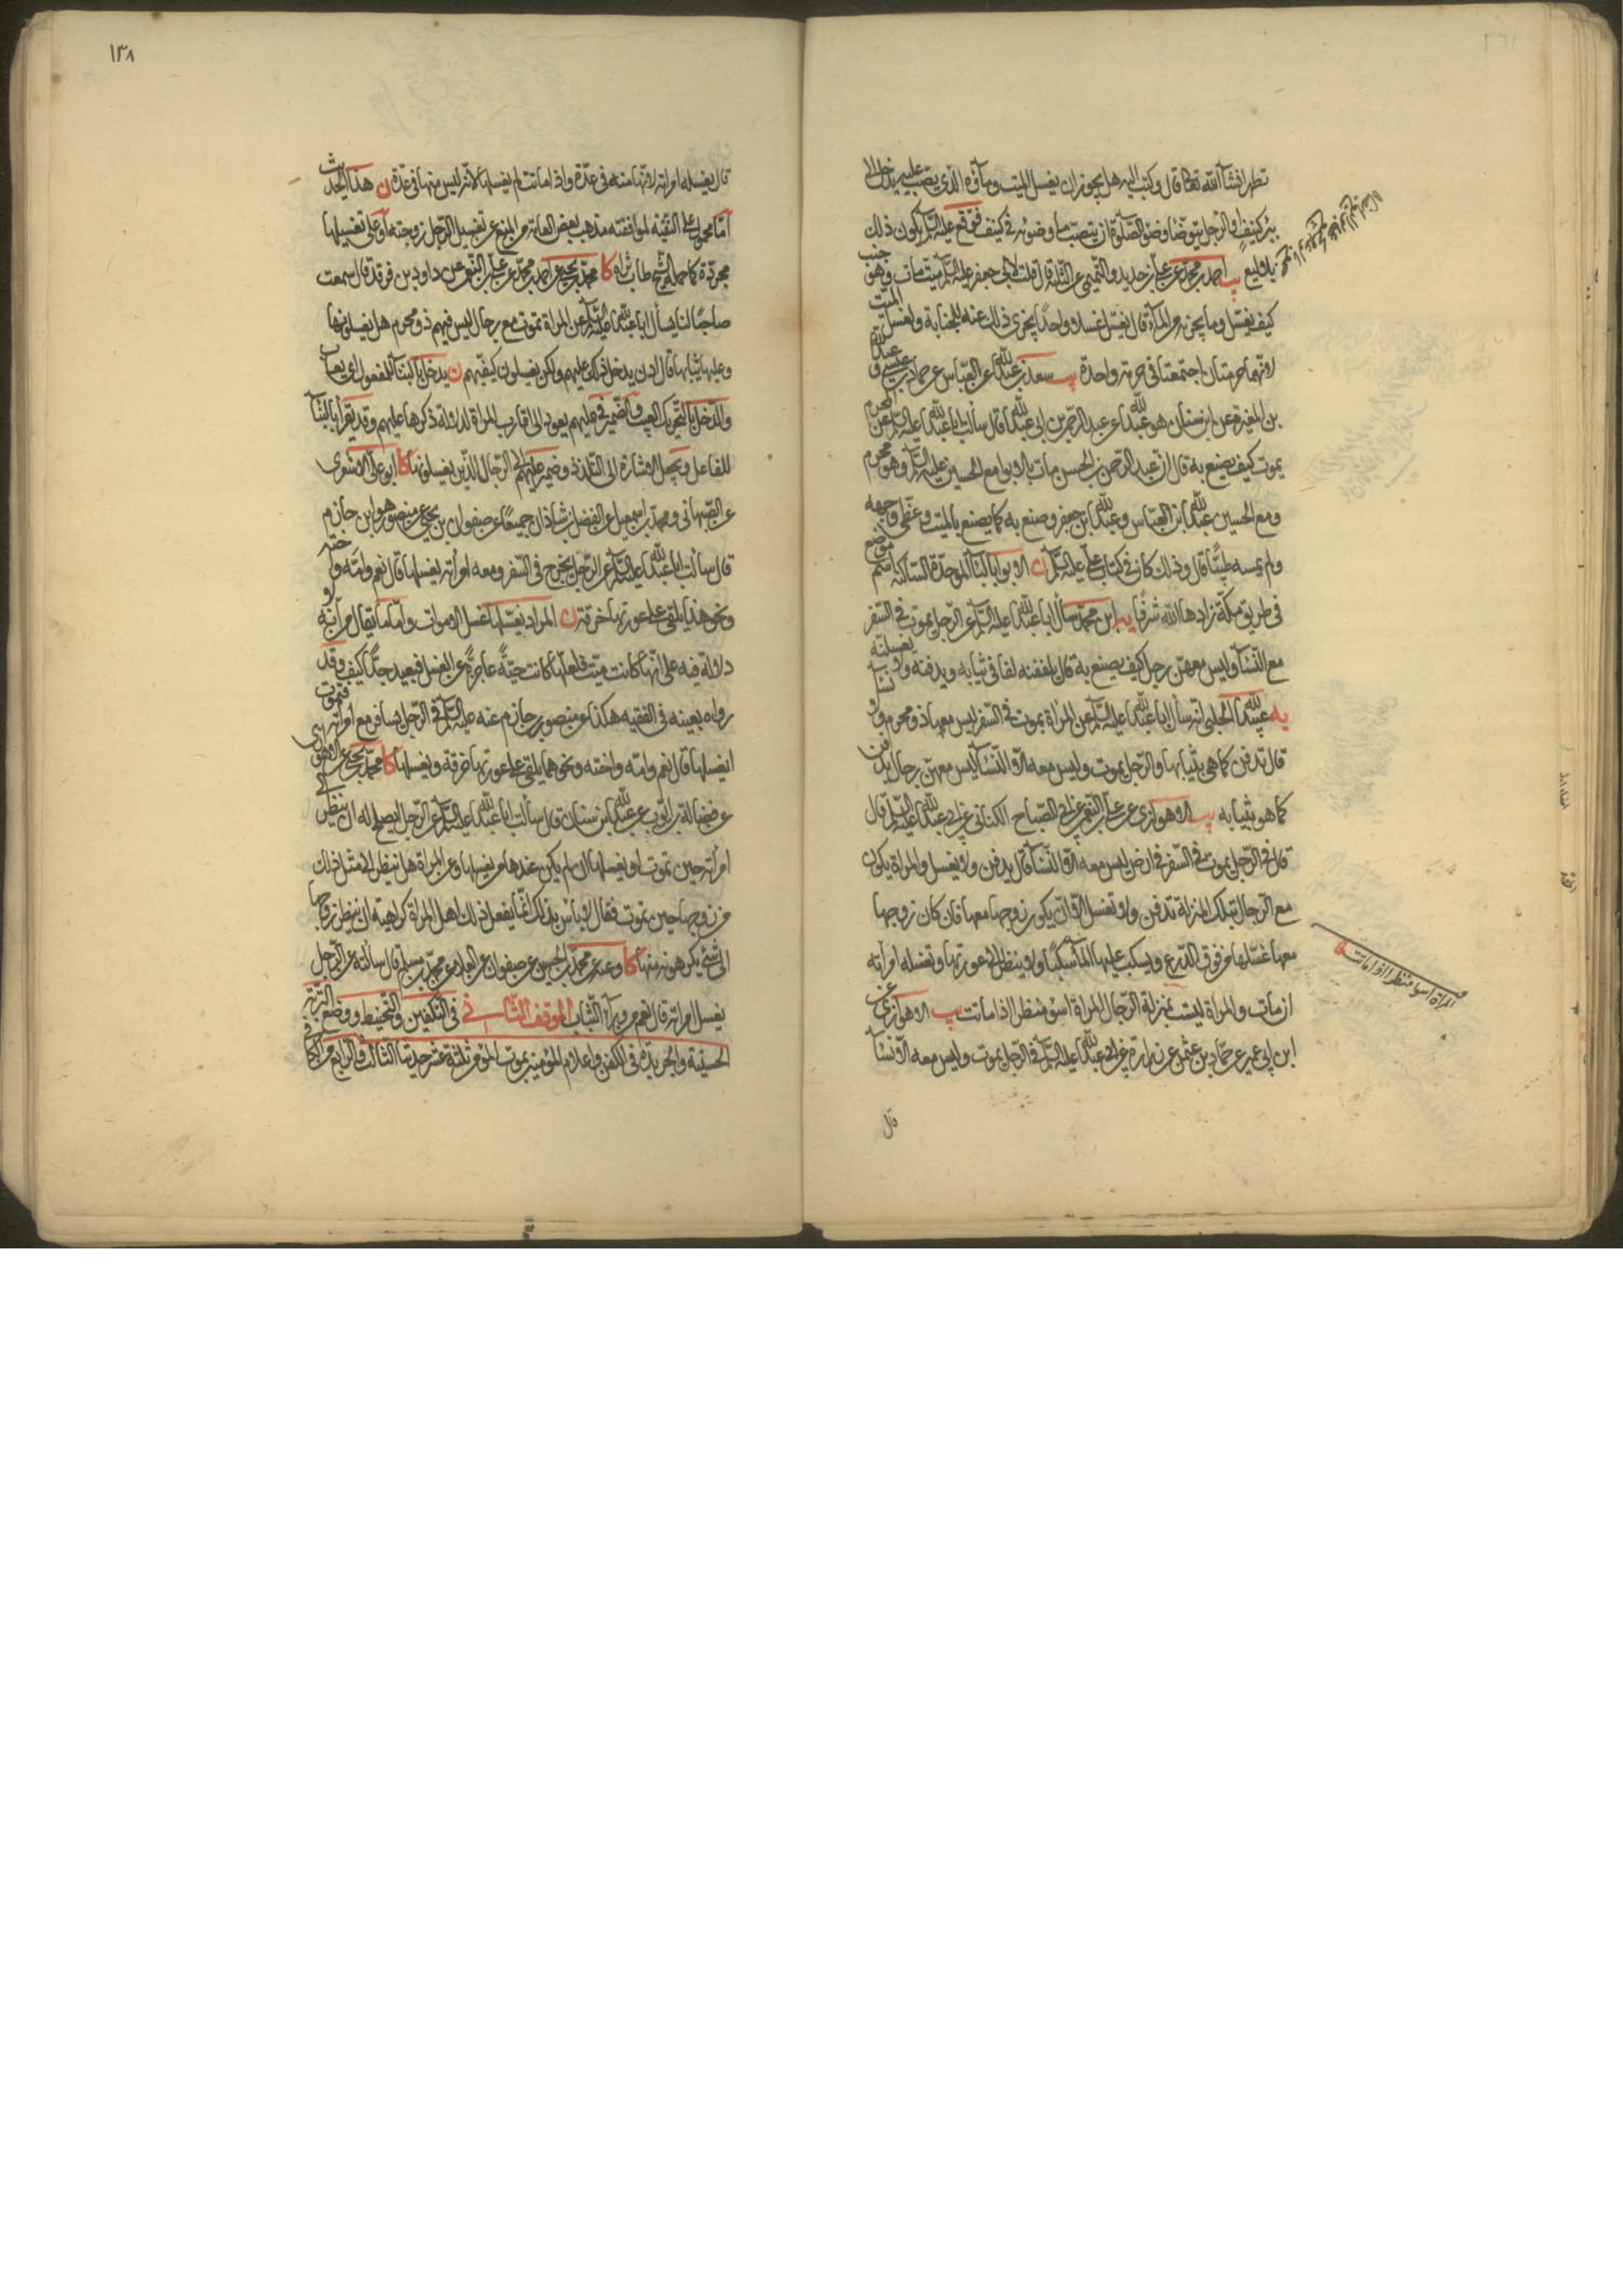 تطهر انشاء الله تعالى قال وكتب اليه هل يجوز ان يغسل الميت وماؤه الذي يصب عليه يدخل الى
بئر كنيف او الرجل يتوضأ وضوء الصلوة ان ينصب ماء وضوئه في كنيف فوقع عليه السلام يكون ذلك
في بلاليع يب احمد بن محمد عن علي بن حديد والتميمي عن الثلثة قال قلت لابي جعفر عليه السلام ميت مات وهو جنب
كيف يغسل وما يجزيه من الماء قال يغسل غسلا واحدا يجزي ذلك عنه للجنابة ولغسل الميت
لانهما حرمتان اجتمعتا في حرمة واحدة يب سعد بن عبد الله عن العباس عن حماد بن عيسى و عبد الله
بن المغيرة عن ابن سنان هو عبد الله عن عبد الرحمن بن ابي عبد الله قال سألت ابا عبد الله عليه السلام عن المحرم
يموت كيف يصنع به قال ان عبد الرحمن بن الحسن مات بالابوا مع الحسين عليه السلام وهو محرم
ومع الحسين عبد الله ابن العباس وعبد الله ابن جعفر وصنع به كما يصنع بالميت وغطى وجهه
ولم يمسه طيبا قال وذلك كان في كتاب علي عليه السلام ن الابوا بالباء الموحدة الساكنة اسم موضع
في طريق مكة زادها الله شرفا يه ابن محمد سأل ابا عبد الله عليه السلام عن الرجل يموت في السفر
مع النساء وليس معهن رجل كيف يصنع به قال يلففنه لفا في ثيابه ويدفنه ولا يغسلنه
يه عبيد الله الحلبي انه سأل ابا عبد الله عليه السلام عن المراة يموت في السفر ليس معها ذو محرم ولا نساء
قال تدفن كما هي بثيابها والرجل يموت وليس معه الا النساء ليس معهن رجال يدفن
كما هو بثيابه يب الاهوازي عن علي بن النعمن عن ابي الصباح الكناني عن ابي عبد الله عليه السلام قال
قال في الرجل يموت في السفر في ارض ليس معه الا النساء قال يدفن ولا يغسل والمراة يكون
مع الرجال بتلك المنزلة تدفن ولا تغسل الا ان يكون زوجها معها فان كان زوجها
معها غسلها من فوق الدرع ويسكب عليها الماء سكبا ولا ينظر الى عورتها وتغسله امرأته
ان مات والمراة ليست بمنزلة الرجال المراة اسوء منظرا اذا ماتت يب الاهوازي عن
ابن ابي عمير عن حماد بن عثمن عن زرارة عن ابي عبد الله عليه السلام في الرجل يموت وليس معه الا نساء
قال
المراة اسوء منظرا اذا ماتت
١٣٨
قال يغسله امراته لانها منه في عدة واذا ماتت لم يغسلها لانه ليس منها في عدة ن هذا الحديث
اما محمول على التقية لموافقته مذهب بعض العامة من المنع عن تغسيل الرجل زوجته او على تغسيلها
مجردة كما حمله الشيخ طاب ثراه كا محمد بن يحيى عن احمد بن محمد عن علي بن النعمن عن داود بن فرقد قال سمعت
صاحبا لنا يسأل ابا عبد الله عليه السلام عن المراة تموت مع رجال ليس فيهم ذو محرم هل يغسلونها
وعليها ثيابها قال اذن يدخل ذلك عليهم ولكن يغسلون كفيهم ن يدخل بالبناء للمفعول اي يعاب
والدخل بالتحريك العيب والضمير في عليهم يعود الى اقارب المراة لدلالة ذكرها عليهم وقد يقرأ بالبناء
للفاعل ويجعل الاشارة الى التلذذ وضمير عليهم الى الرجال الذين يغسلونها كا ابو علي الاشعري
عن الصهباني ومحمد بن اسمعيل عن الفضل بن شاذان جميعا عن صفوان بن يحيى عن منصور هو ابن حازم
قال سألت ابا عبد الله عليه السلام عن الرجل يخرج في السفر ومعه امرأته يغسلها قال نعم وامه واخته
ونحو هذا يلقي على عورتها خرقة ن المراد يغسلها غسل الاموات واما ما يقال من انه لا
دلالة فيه على انها كانت ميت فلعلها كانت حية عاجزة عن الغسل فبعيد جدا كيف وقد
رواه بعينه في الفقيه هكذا عن منصور بن حازم عنه عليه السلام في الرجل يسافر مع امراته فتموت
ايغسلها قال نعم وامه واخته ونحوهما يلقي على عورتها خرقة ويغسلها كا محمد بن يحيى عن
عن فضالة بن ايوب عن عبد الله ابن سنان قال سألت ابا عبد الله عليه السلام عن الرجل ايصلح له ان ينظر الى
امرأته حين تموت او يغسلها ان لم يكن عندها من يغسلها وعن المراة هل تنظر الى مثل ذلك
من زوجها حين يموت فقال لا بأس بذلك انما يفعل ذلك اهل المراة كراهية ان ينظر زوجها
الى شيء يكرهونه منها كا وعنه عن محمد بن الحسين عن صفوان عن العلا عن محمد بن مسلم قال سألته عن الرجل
يغسل امراته قال نعم من وراء الثياب الموقف الثاني في التكفين والتحنيط ووضع التربة
الحسينية والجريدة في الكفن واعلام المؤمنين بموت المؤمن ثلثة عشر حديثا الثالث والرابع من الكافي